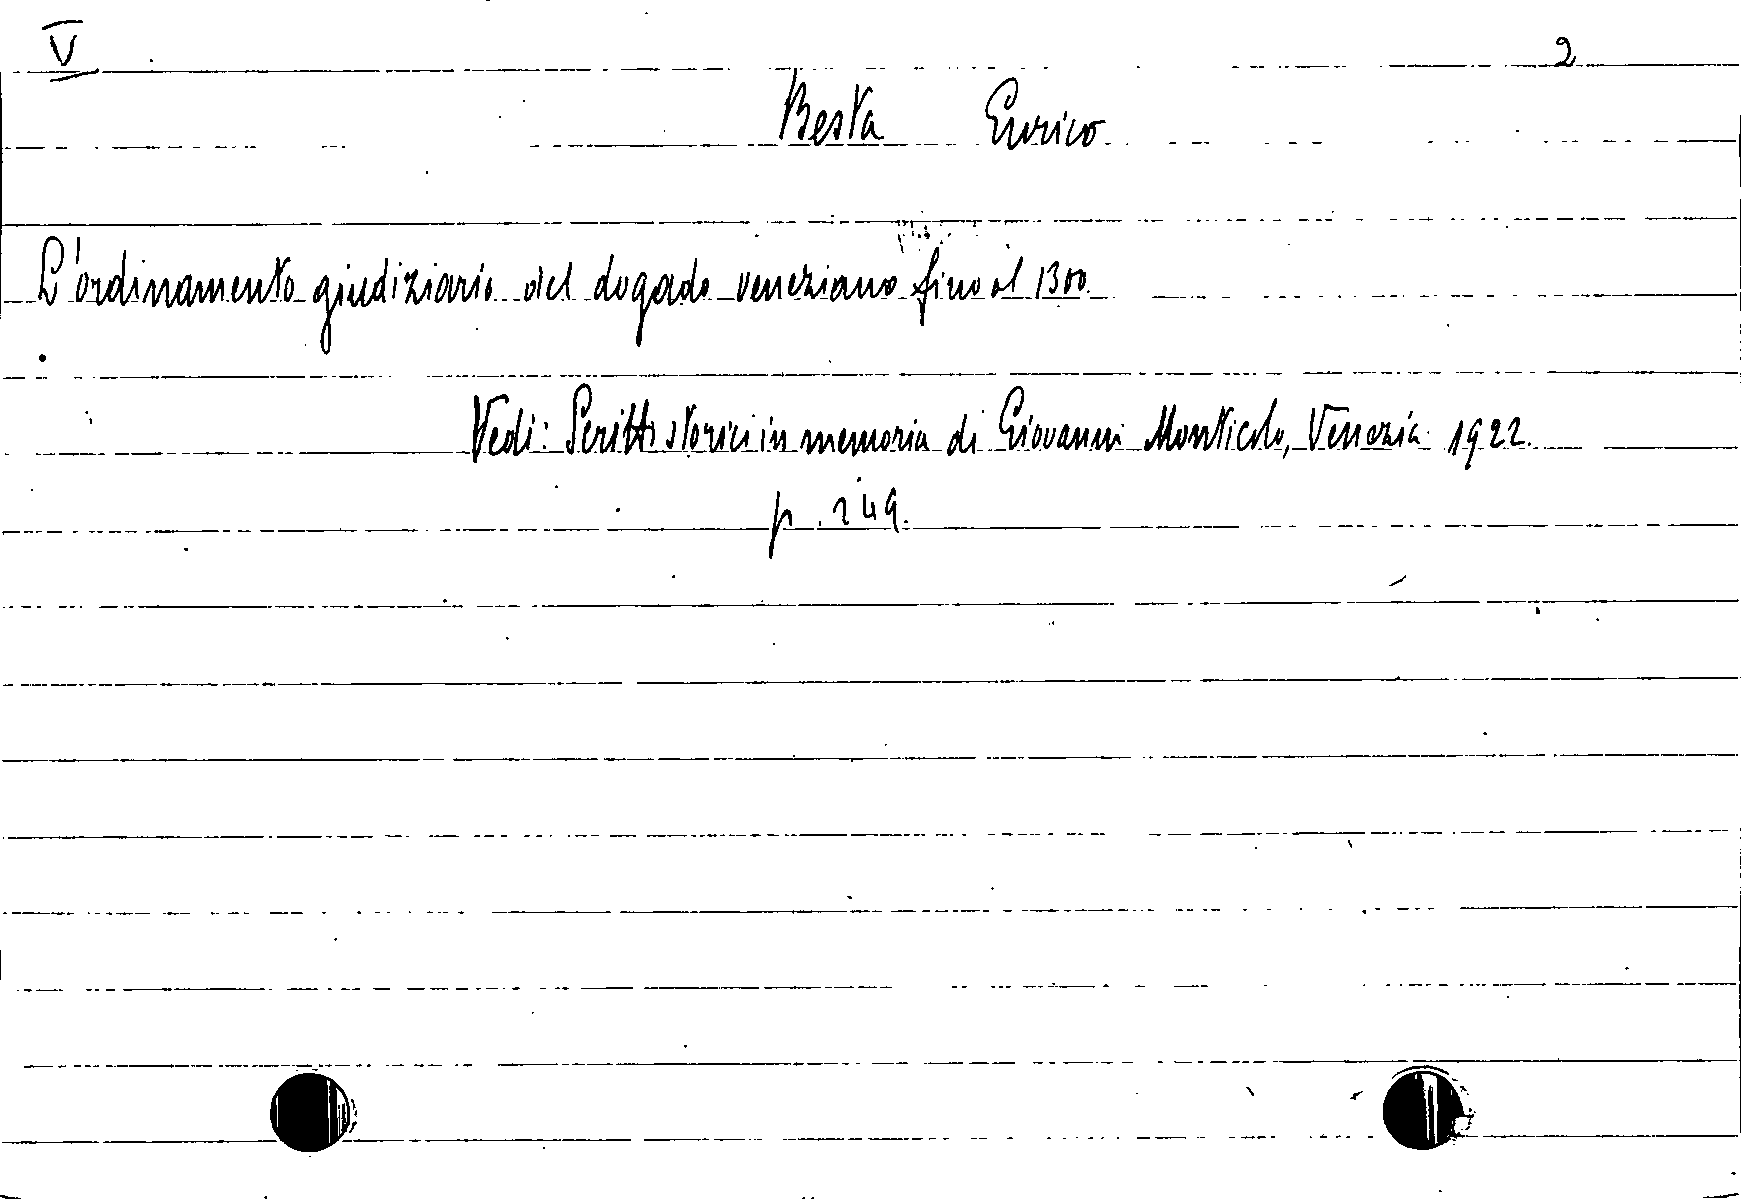 V 2
Besta Enrico
L'ordinamento giudiziario del dogado veneziano fino al 1300.
Vedi: Scritti storici in memoria di Giovanni Monticolo, Venezia 1922.
p. 249.